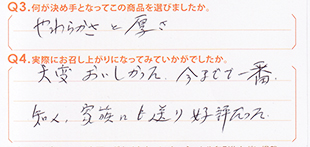 Q3.何が決め手となってこの商品を選びましたか。
やわらかさと厚さ
Q4.実際にお召し上がりになってみていかがでしたか。
大変おいしかった.今までで一番.
知人、家族にも送り好評だった.